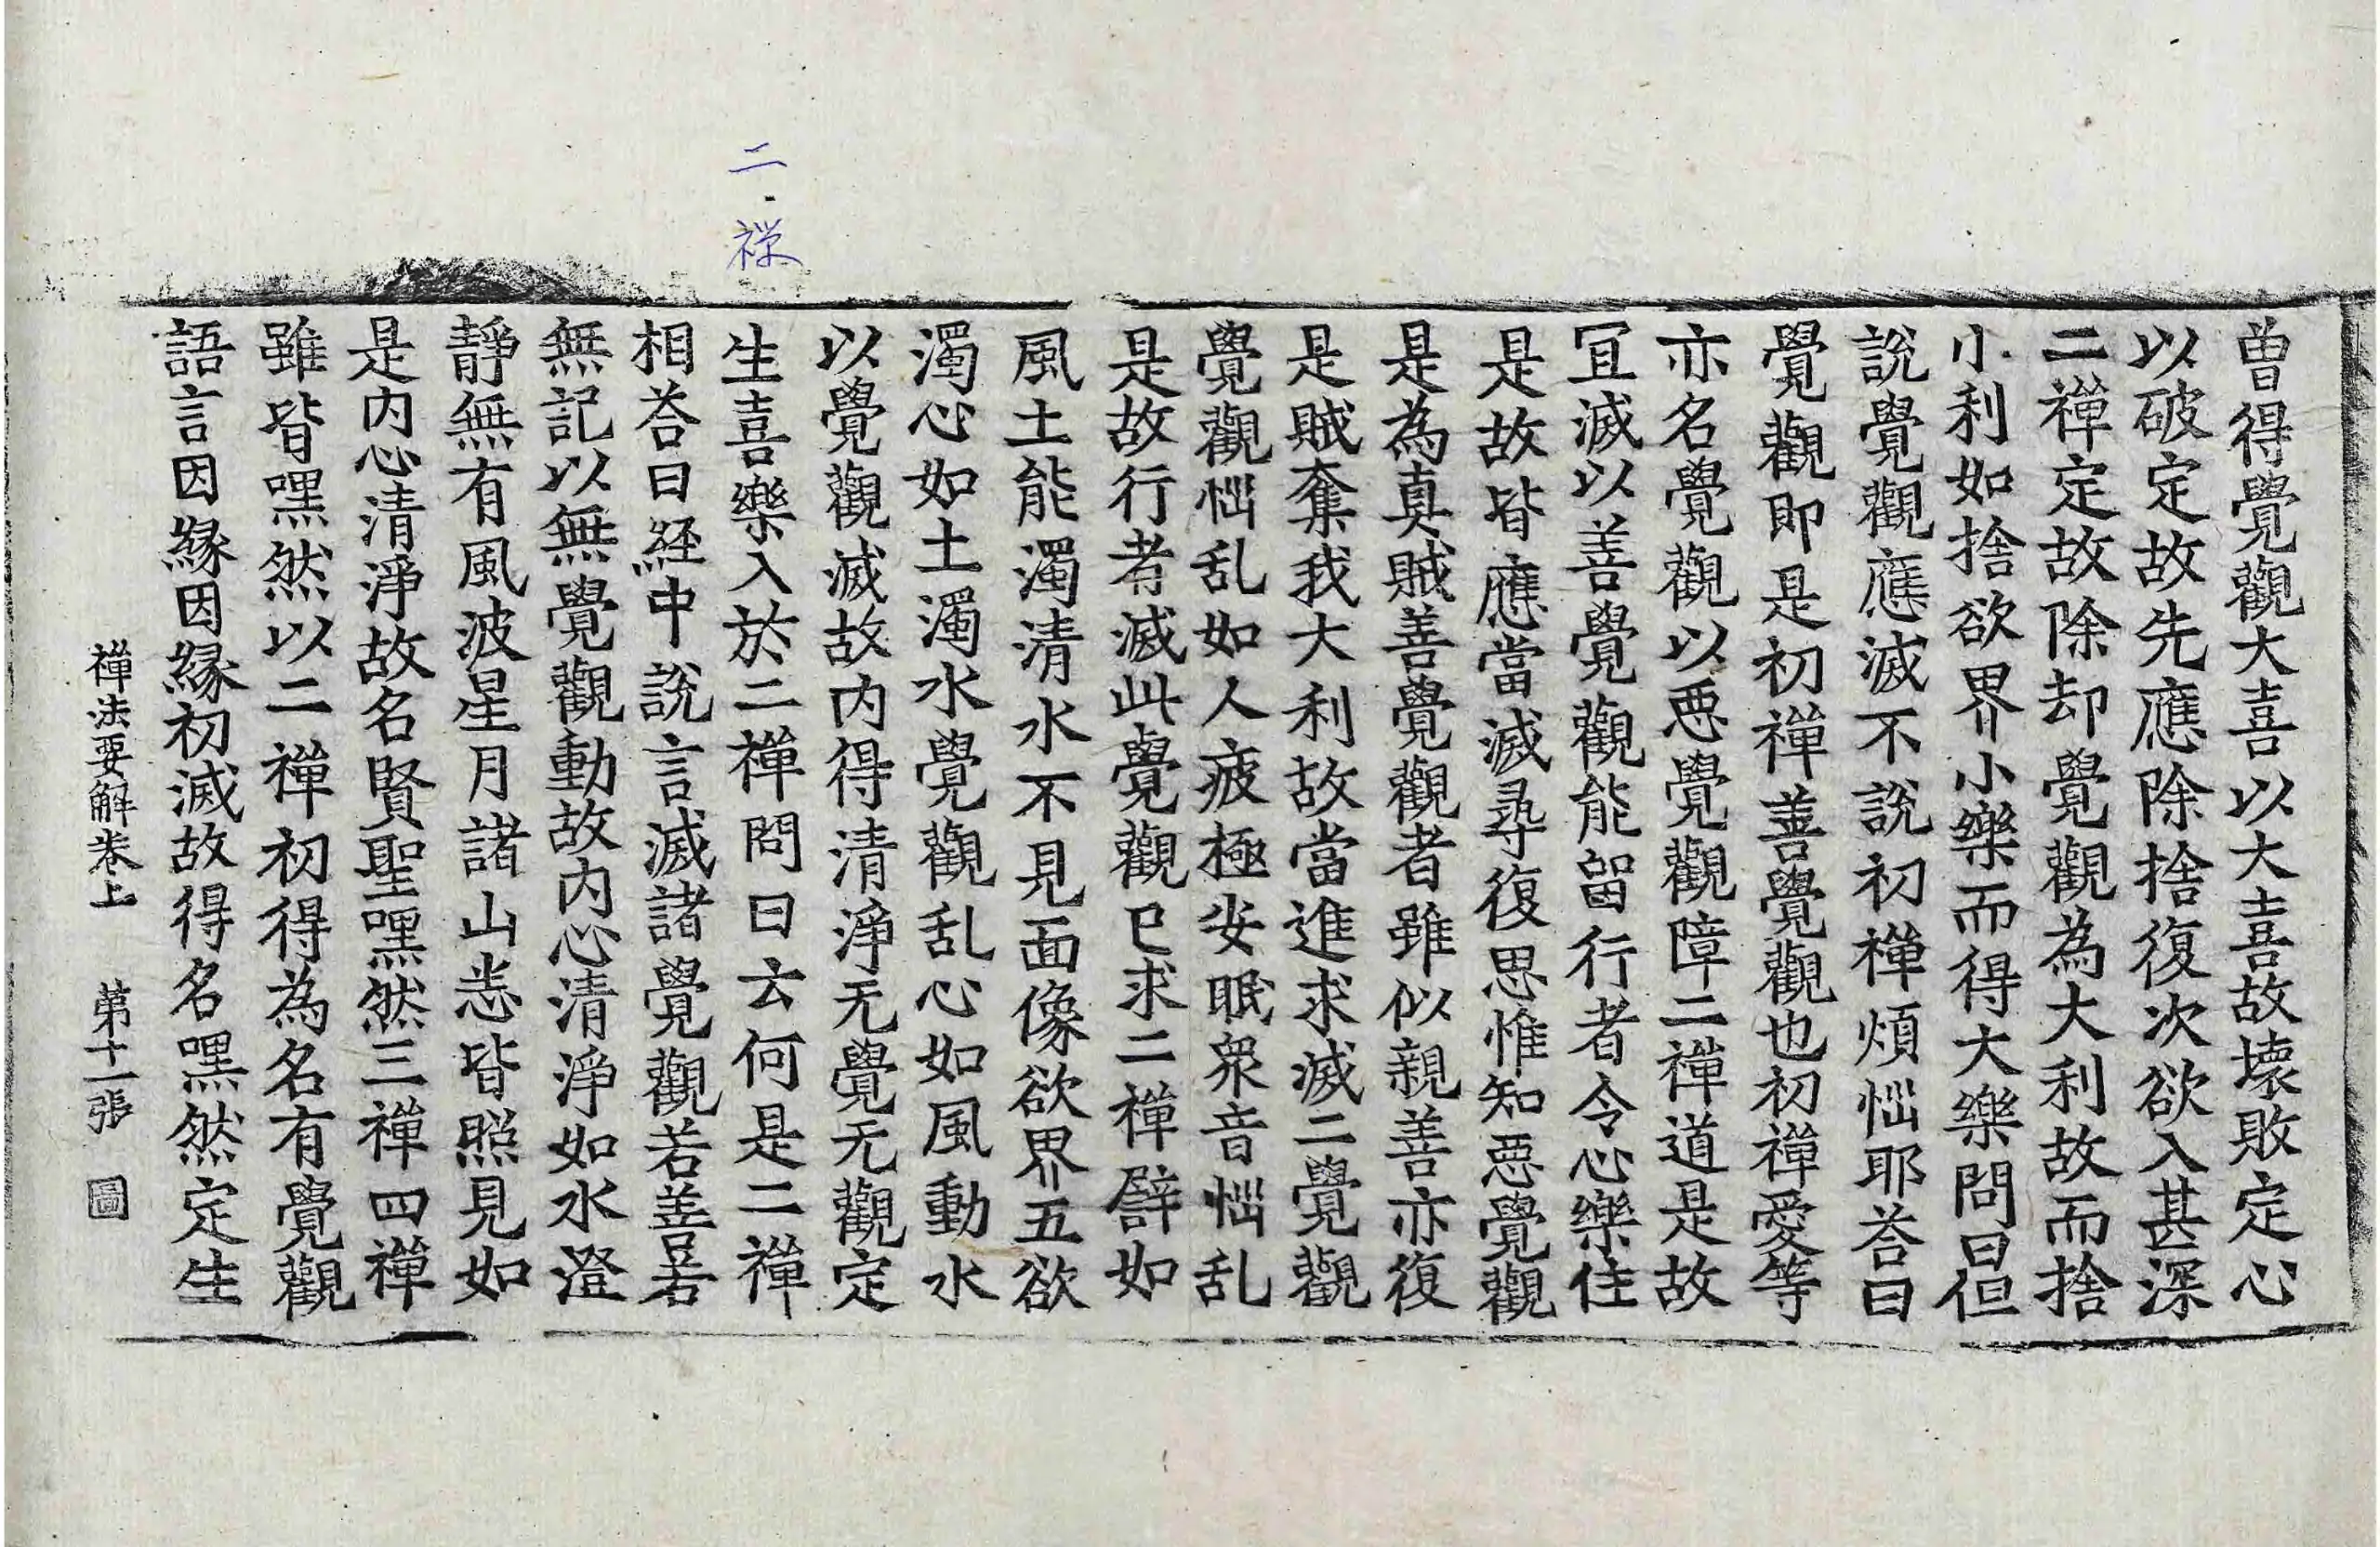 二.禅
曽得覺觀大喜以大喜故壊敗定心
以破定故先應除捨復次欲入甚深
二禪定故除却覺觀為大利故而捨
小利如捨欲界小樂而得大樂問曰但
說覺觀應滅不說初禪煩惱耶荅曰
覺觀即是初禪善覺觀也初禪愛等
亦名覺觀以惡覺觀障二禪道是故
冝滅以善覺觀能留行者令心樂住
是故皆應當滅尋復思惟知惡覺觀
是為真賊善覺觀者雖似親善亦復
是賊奪我大利故當進求滅二覺觀
覺觀惱乱如人疲極安眠衆音惱乱
是故行者滅此覺觀已求二禪譬如
風土能濁清水不見面像欲界五欲
濁心如土濁水覺觀乱心如風動水
以覺觀滅故内得清淨无覺无觀定
生喜樂入於二禪問曰云何是二禪
相荅曰経中說言滅諸覺觀若善若
無記以無覺觀動故内心清淨如水澄
靜無有風波星月諸山悉皆照見如
是内心清淨故名賢聖嘿然三禪四禪
雖皆嘿然以二禪初得為名有覺觀
語言因緣因緣初滅故得名嘿然定生
禪法要解卷上 第十一張 圖